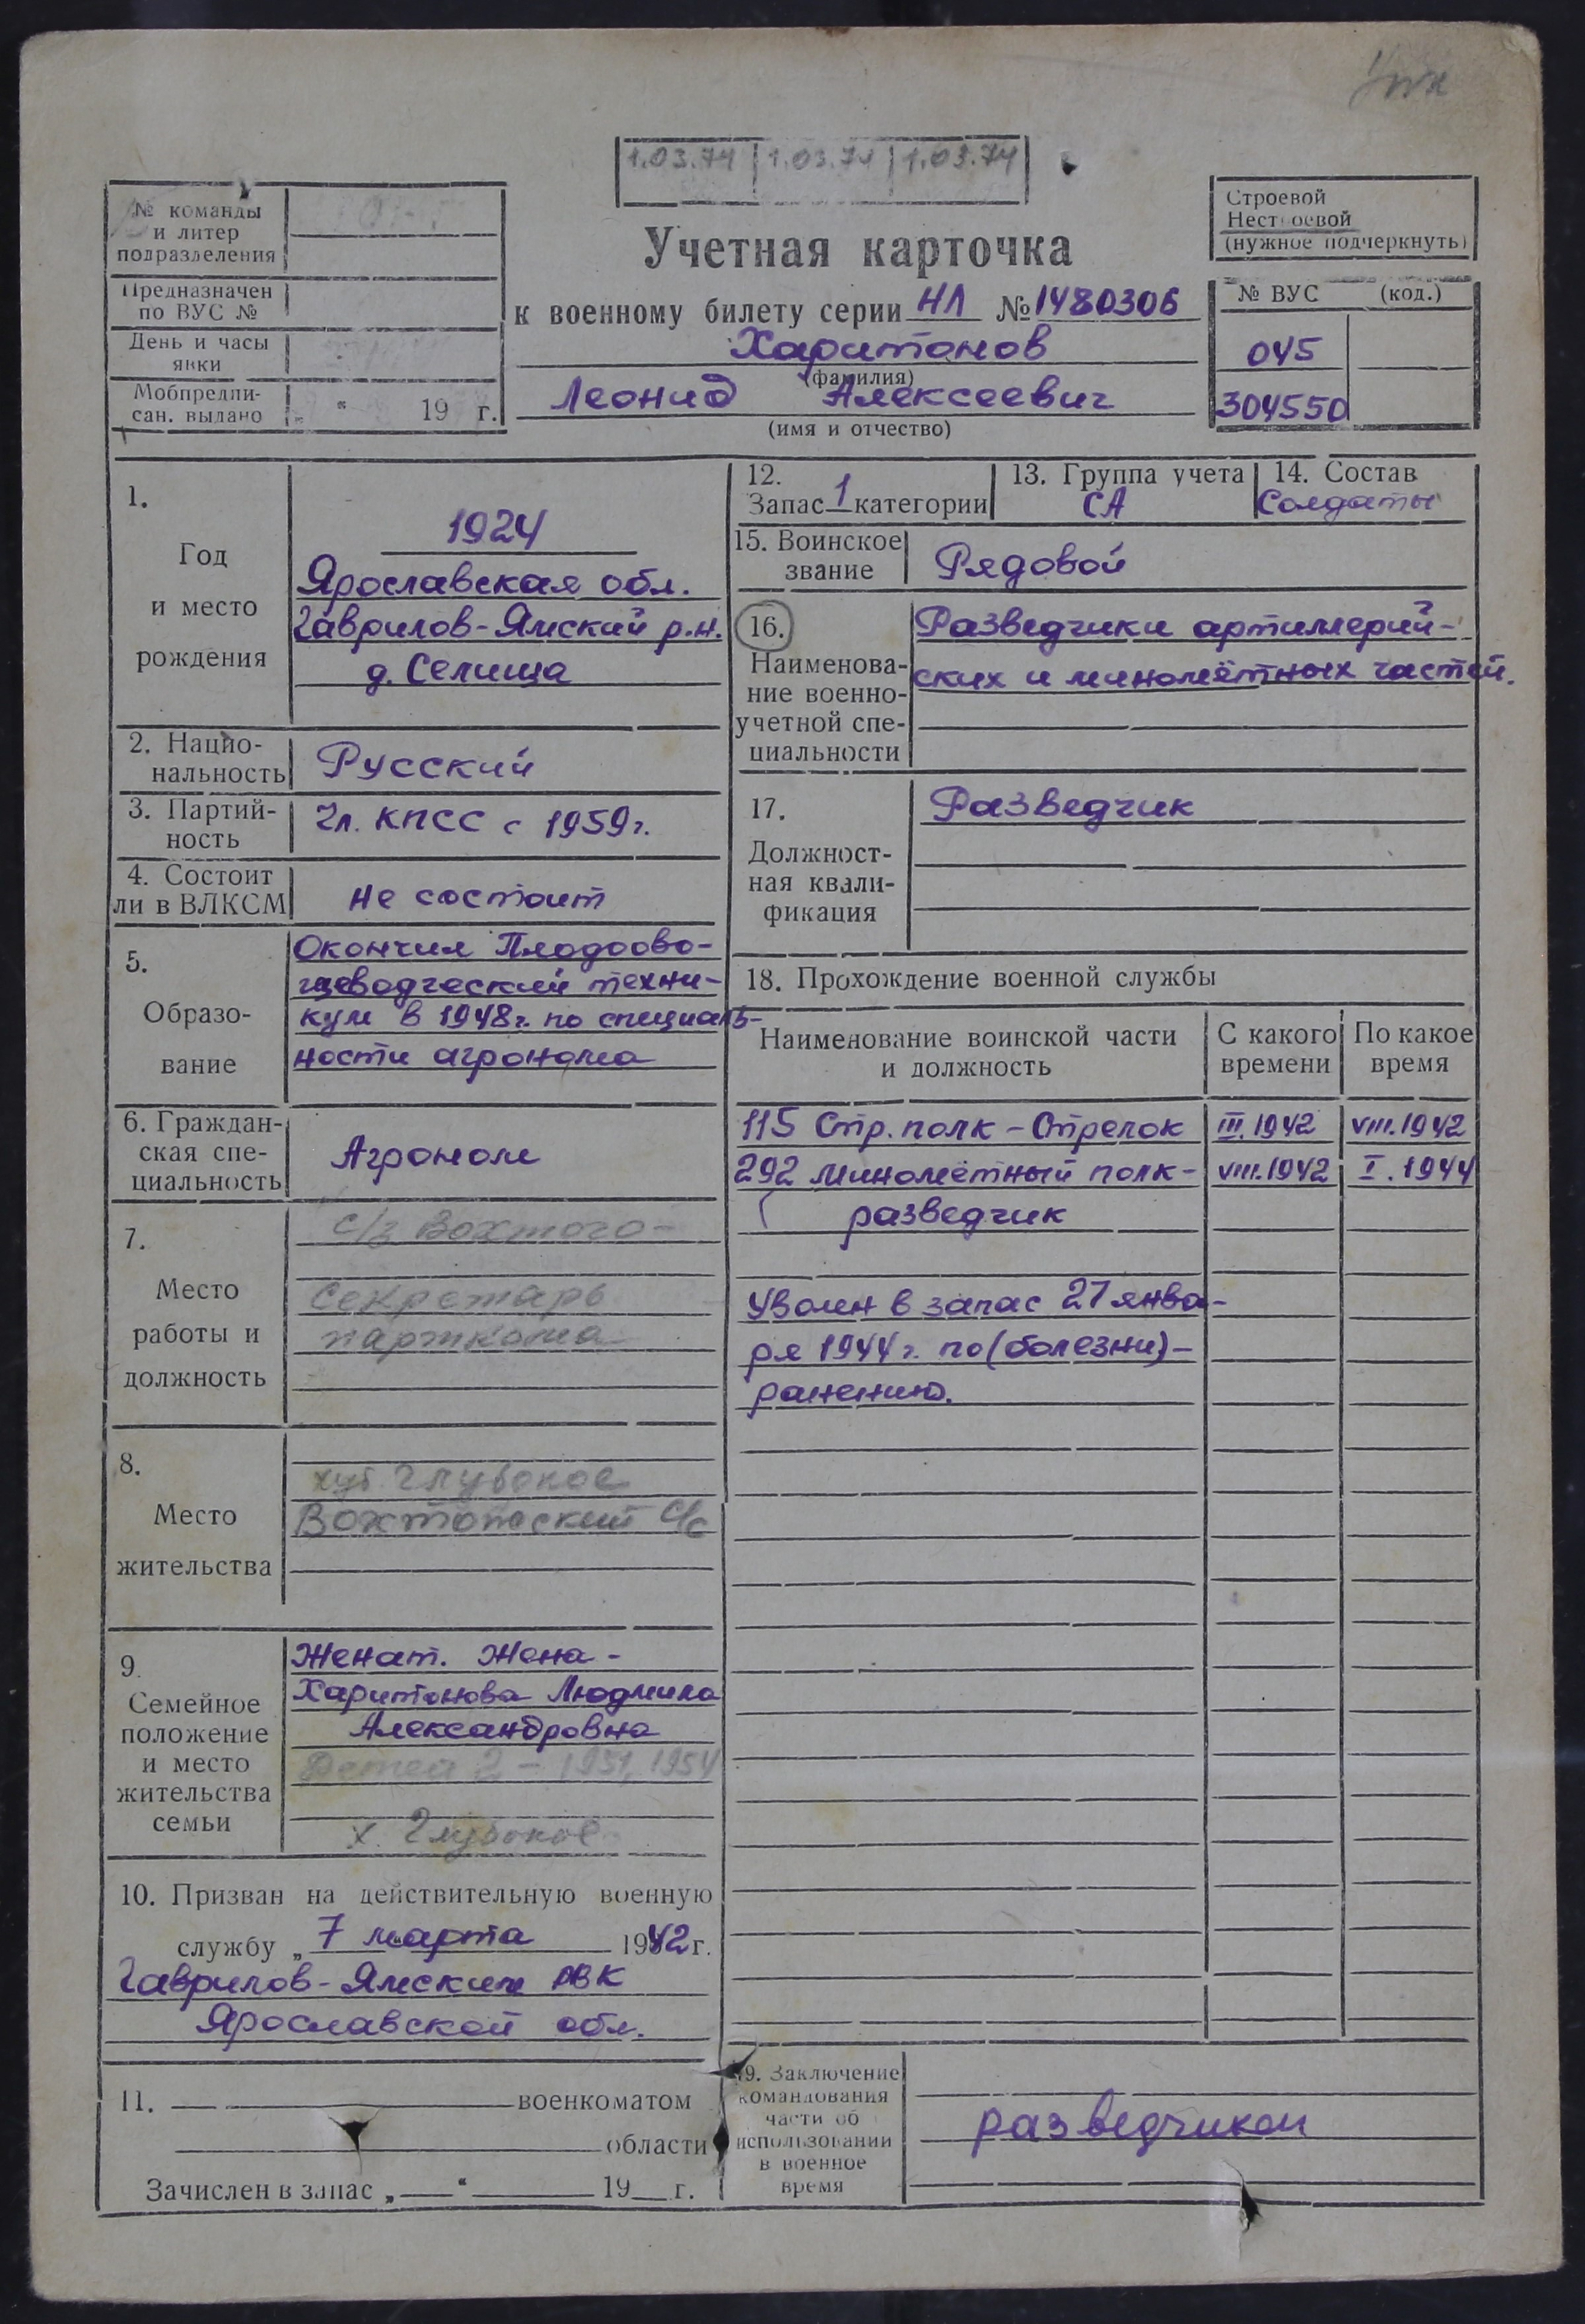 1.03.74 1.03.74 1.03.74
№ команды
и литер
подразделения
Предназначен
по ВУС №
День и часы
явки
Мобпредпи-
сан. выдано „ “ 19 г.
Учетная карточка
к военному билету серии НЛ № 1480306
Харитонов
(фамилия)
Леонид Алексеевич
(имя и отчество)
Строевой
Нестроевой
(нужное подчеркнуть)
№ ВУС (код.)
045
304550
1.
Год
и место
рождения
1924
Ярославская обл.
Гаврилов-Ямский р.н.
д. Селища
2. Нацио-
нальность
Русский
3. Партий-
ность
Чл. КПСС с 1959г.
4. Состоит
ли в ВЛКСМ
не состоит
5.
Образо-
вание
Окончил Плодоово-
щеводческий техни-
кум в 1948г. по специаль-
ности агронома
6. Граждан-
ская спе-
циальность
Агроном
7.
Место
работы и
должность
с/з Вохтого-
Секретарь
парткома
8.
Место
жительства
хут. Глубокое
с/с
9.
Семейное
положение
и место
жительства
семьи
Женат. Жена -
Харитонова Людмила
Александровна
Детей 2 - 1951, 1954
х. Глубокое
10. Призван на действительную военную
службу „ 7 марта 1942 г.
Гаврилов-Ямским РВК
Ярославской обл.
11. военкоматом
области
Зачислен в запас „ “ 19 г.
12.
Запас 1 категории
13. Группа учета
СА
14. Состав
Солдаты
15. Воинское
звание
Рядовой
16.
Наименова-
ние военно-
учетной спе-
циальности
Разведчики артиллерий-
ских и миномётных частей.
17.
Должност-
ная квали-
фикация
Разведчик
18. Прохождение военной службы
Наименование воинской части
и должность
С какого
времени
По какое
время
115 Стр. полк - Стрелок III.1942 VIII.1942
292 миномётный полк - VIII.1942 I.1944
разведчик
Уволен в запас 27 янва-
ря 1944 г. по (болезни) -
ранению.
19. Заключение
командования
части об
использовании
в военное
время
разведчиком